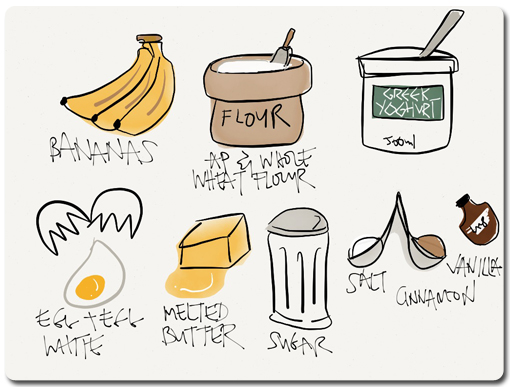 BANANAS
FLOUR
AP & WHOLE
WHEAT FLOUR
GREEK
YOGHURT
500ml
EGG + EGG
WHITE
MELTED
BUTTER
SUGAR
SALT
CINNAMON
VANILLA